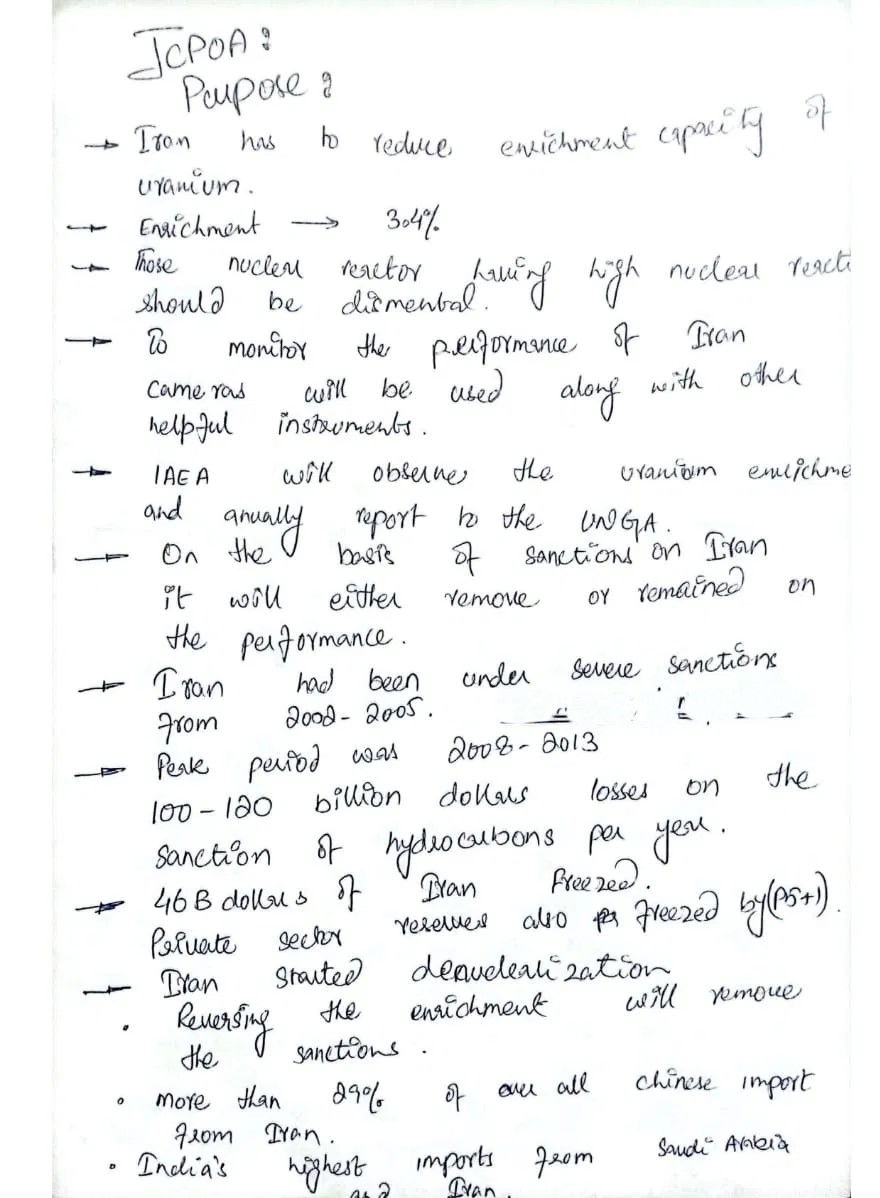 JCPOA :
Purpose :
→ Iran has to reduce enrichment capacity of
uranium.
→ Enrichment → 3.4%
→ Those nuclear reactor having high nuclear reacti
should be dismental.
→ To monitor the performance of Iran
cameras will be used along with other
helpful instruments.
→ IAEA will observe the uranium enrichme
and anually report to the UNGA.
→ On the basis of sanctions on Iran
it will either remove or remained on
the performance.
→ Iran had been under severe sanctions
from 2002 - 2005.
→ Peak period was 2008 - 2013
100 - 120 billion dollars losses on the
sanction of hydrocarbons per year.
→ 46 B dollars of Iran freezed.
Private sector reserves also freezed by (P5+1).
→ Iran started denuclearization
• Reversing the enrichment will remove
the sanctions.
• more than 29% of over all chinese import
from Iran.
• India's highest imports from Saudi Arabia
and Iran.